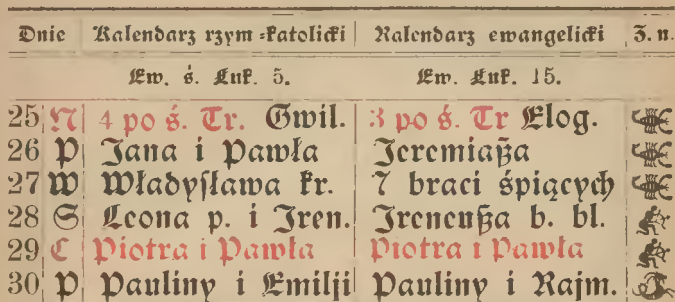 Dnie Kalendarz rzym=katolicki Kalendarz ewangelicki Z. n.
Ew. ś. Łuk. 5. Ew. Łuk. 15.
25 N 4 po ś. Tr. Gwil. 3 po ś. Tr Elog.
26 P Jana i Pawła Jeremiaßa
27 W Władyſława kr. 7 braci śpiących
28 S Leona p. i Jren. Jreneußa b. bl.
29 C Piotra i Pawła Piotra i Pawła
30 P Pauliny i Emilji Pauliny i Rajm.